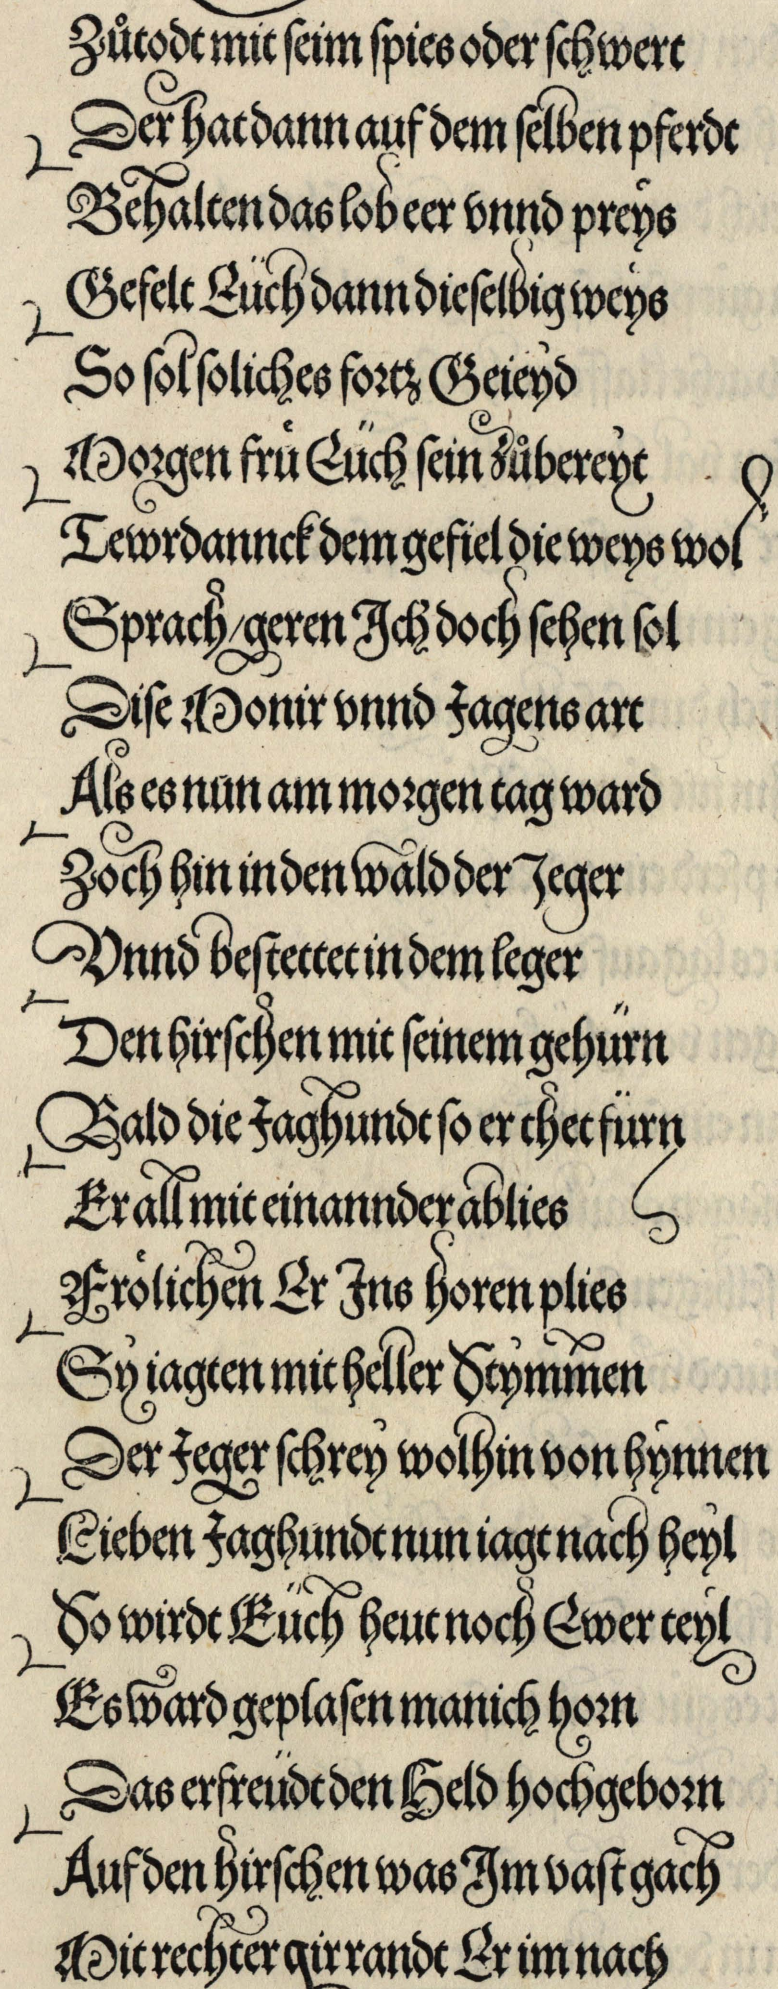 Zůtodt mit seim spies oder schwert
Der hat dann auf dem selben pferdt
Behalten das lob eer vnnd preys
Gefelt Eüch dann dieselbig weys
So sol soliches fortz Geieyd
Morgen frů Eüch sein zůbereyt
Tewrdannck dem gefiel die weys wol
Sprach/geren Ich doch sehen sol
Dise Monir vnnd Jagens art
Als es nun am morgen tag ward
Zoch hin in den wald der Jeger
Vnnd bestettet in dem leger
Den hirschen mit seinem gehürn
Bald die Jaghundt so er thet fürn
Er all mit einannder ablies
Frölichen Er Ins horen plies
Sy iagten mit heller Stymmen
Der Jeger schrey wolhin von hynnen
Lieben Jaghundt nun iagt nach heyl
So wirdt Eüch heut noch Ewer teyl
Es ward geplasen manich horn
Das erfreüdt den Held hochgeborn
Auf den hirschen was Im vast gach
Mit rechter gir randt Er im nach